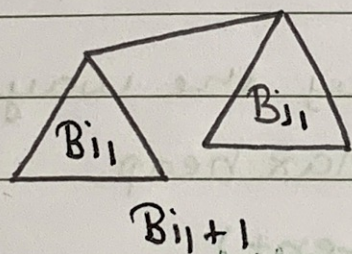 Bi₁ Bj₁
Bi₁+1